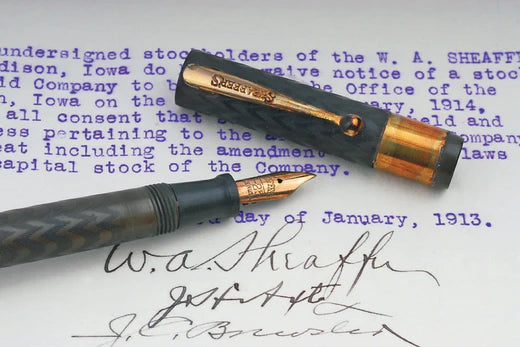 undersigned stockholders of the W. A. SHEAFFE
dison, Iowa do waive notice of a stoc
ld Company to b he Office of the
n, Iowa on the uary, 1914,
all consent that ld and
ess pertaining to the a ompany
eat including the amendment laws
capital stock of the Company.
SHEAFFER'S
day of January, 1913.
W.A. Sheaffer
J. C. Brewster